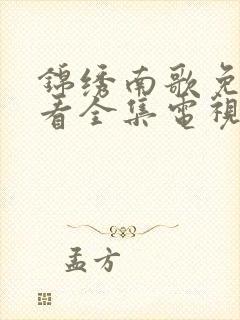 錦绣南歌免
看全集電視
孟方